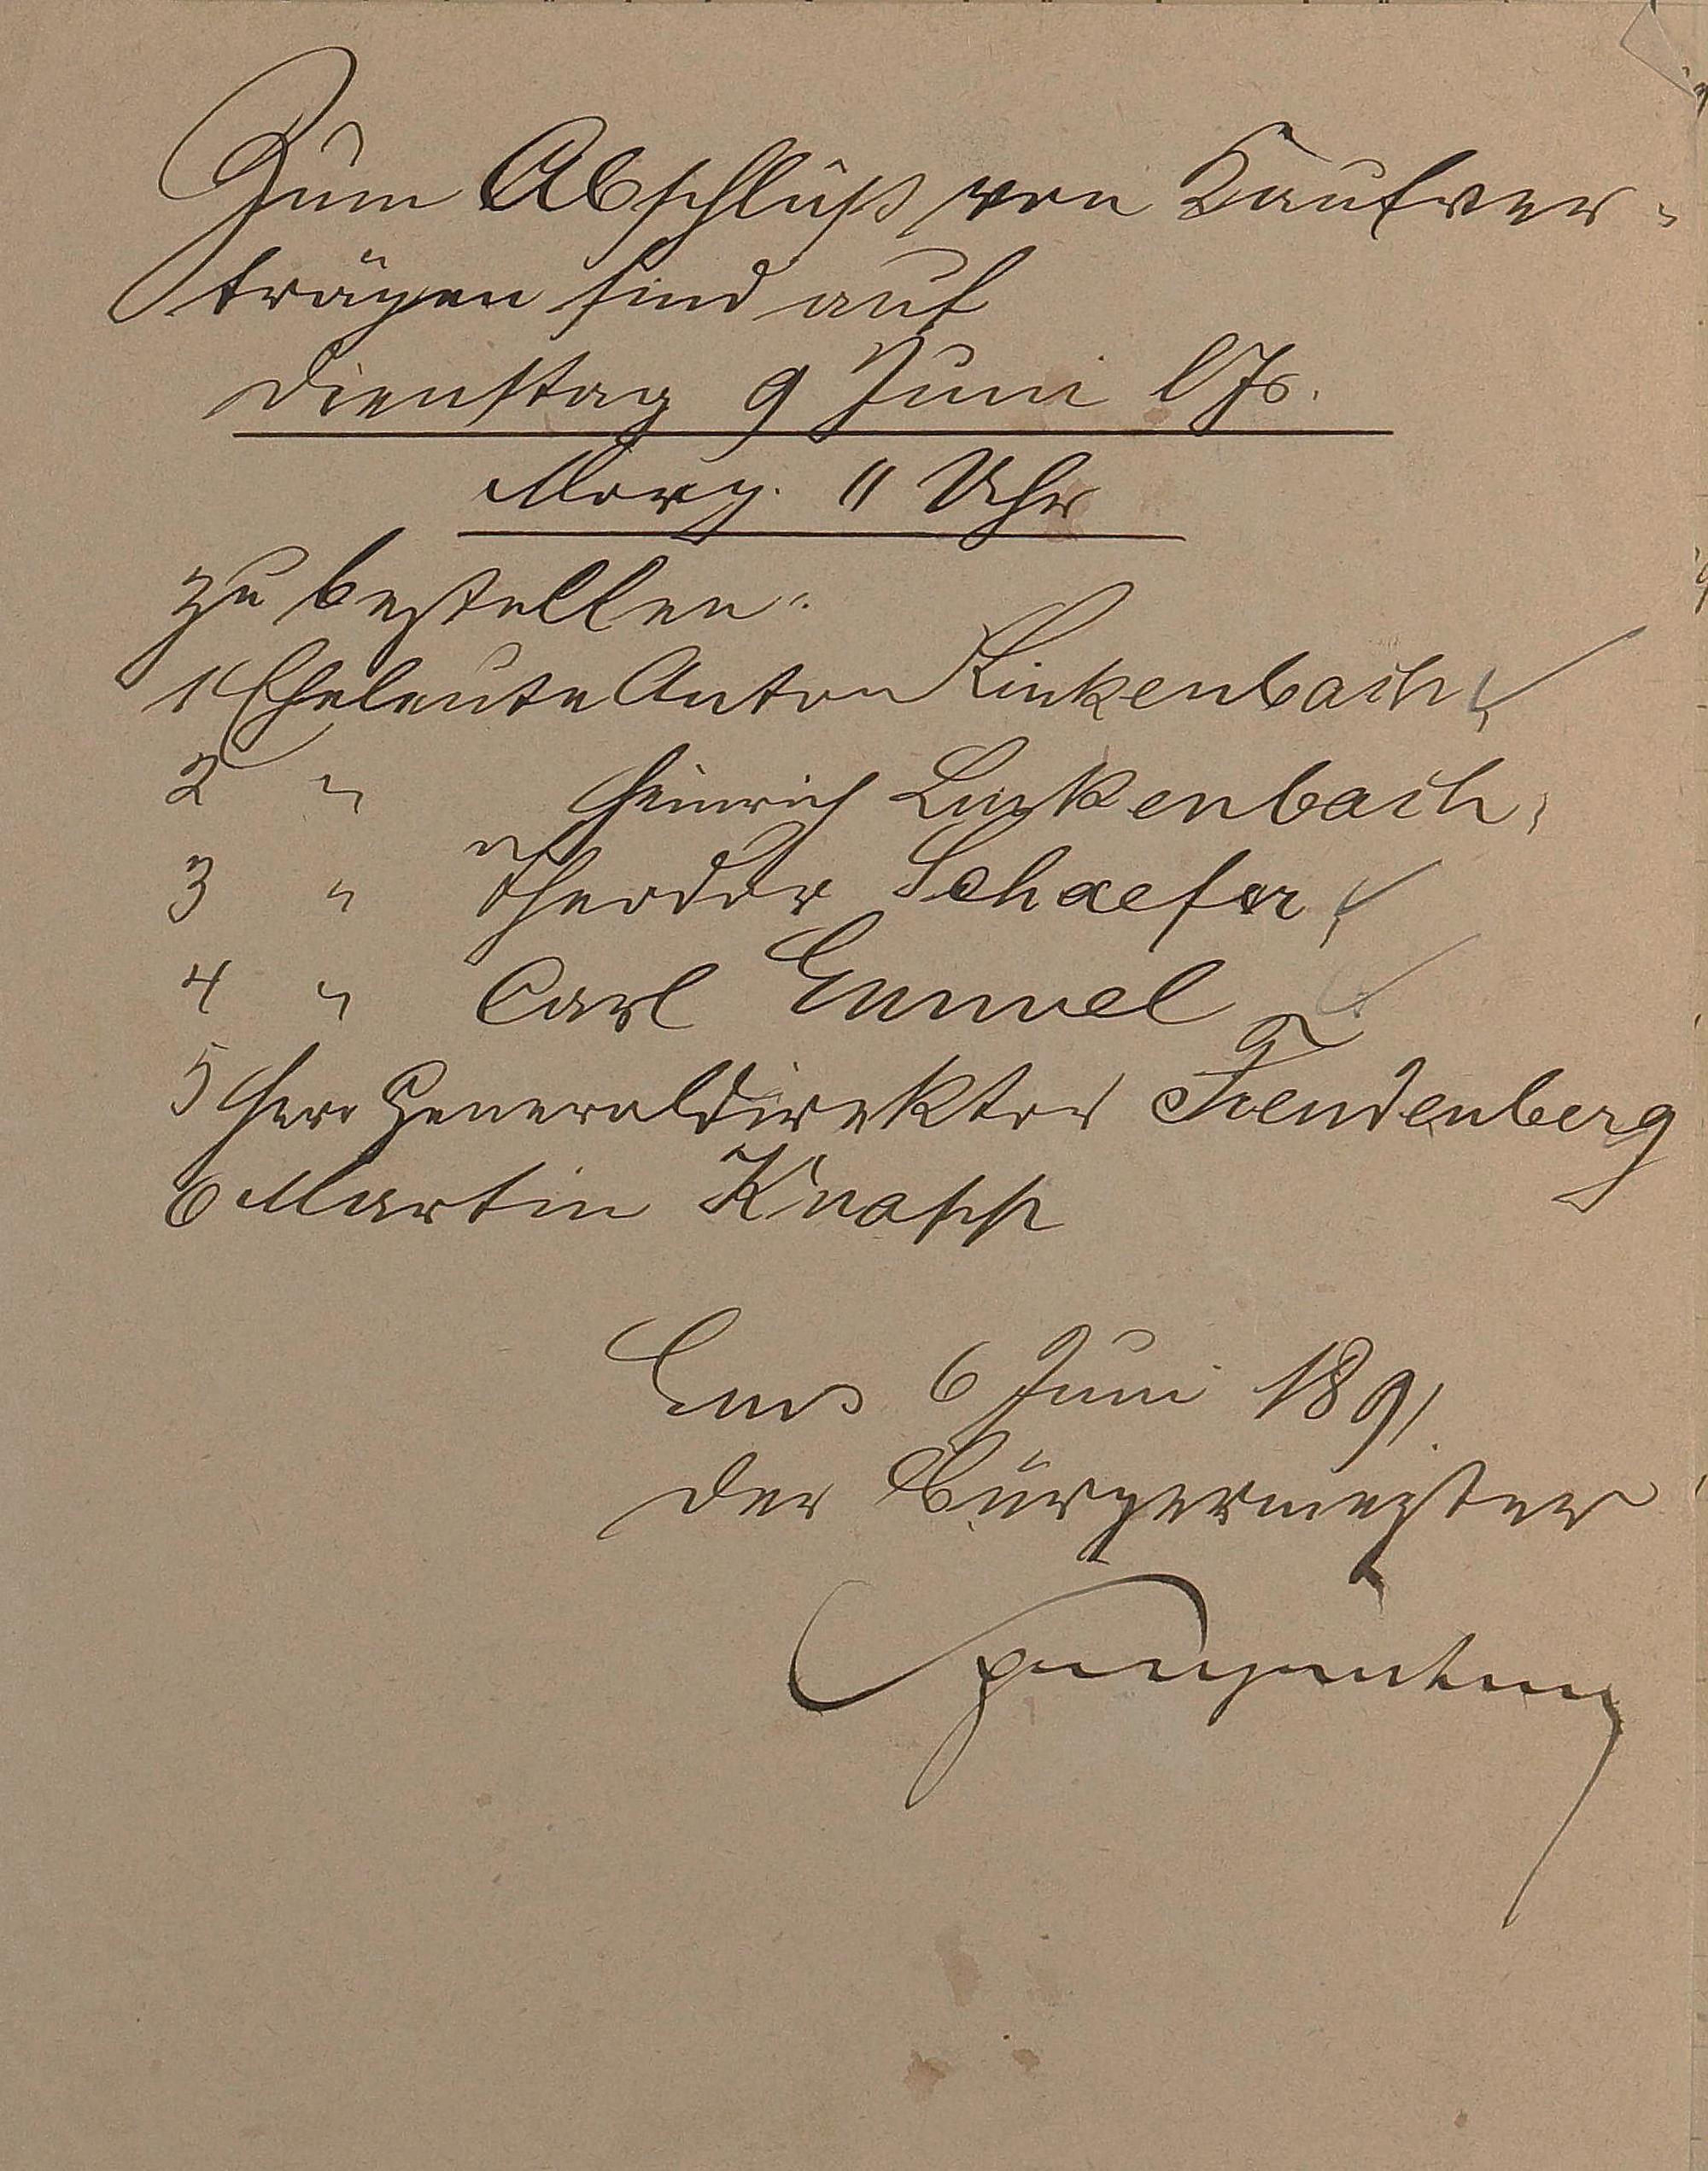 Zum Abschluß von Kaufver-
trägen sind auf
Dienstag 9 Juni l Js.
Morg. 11 Uhr
zu bestellen:
1 Eheleute Anton Linkenbach,
2 " Heinrich Linkenbach,
3 " Theodor Schaefer,
4 " Carl
5 Herr Generaldirektor Freudenberg
6 Martin Knapp
Ems 6 Juni 1891.
Der Bürgermeister